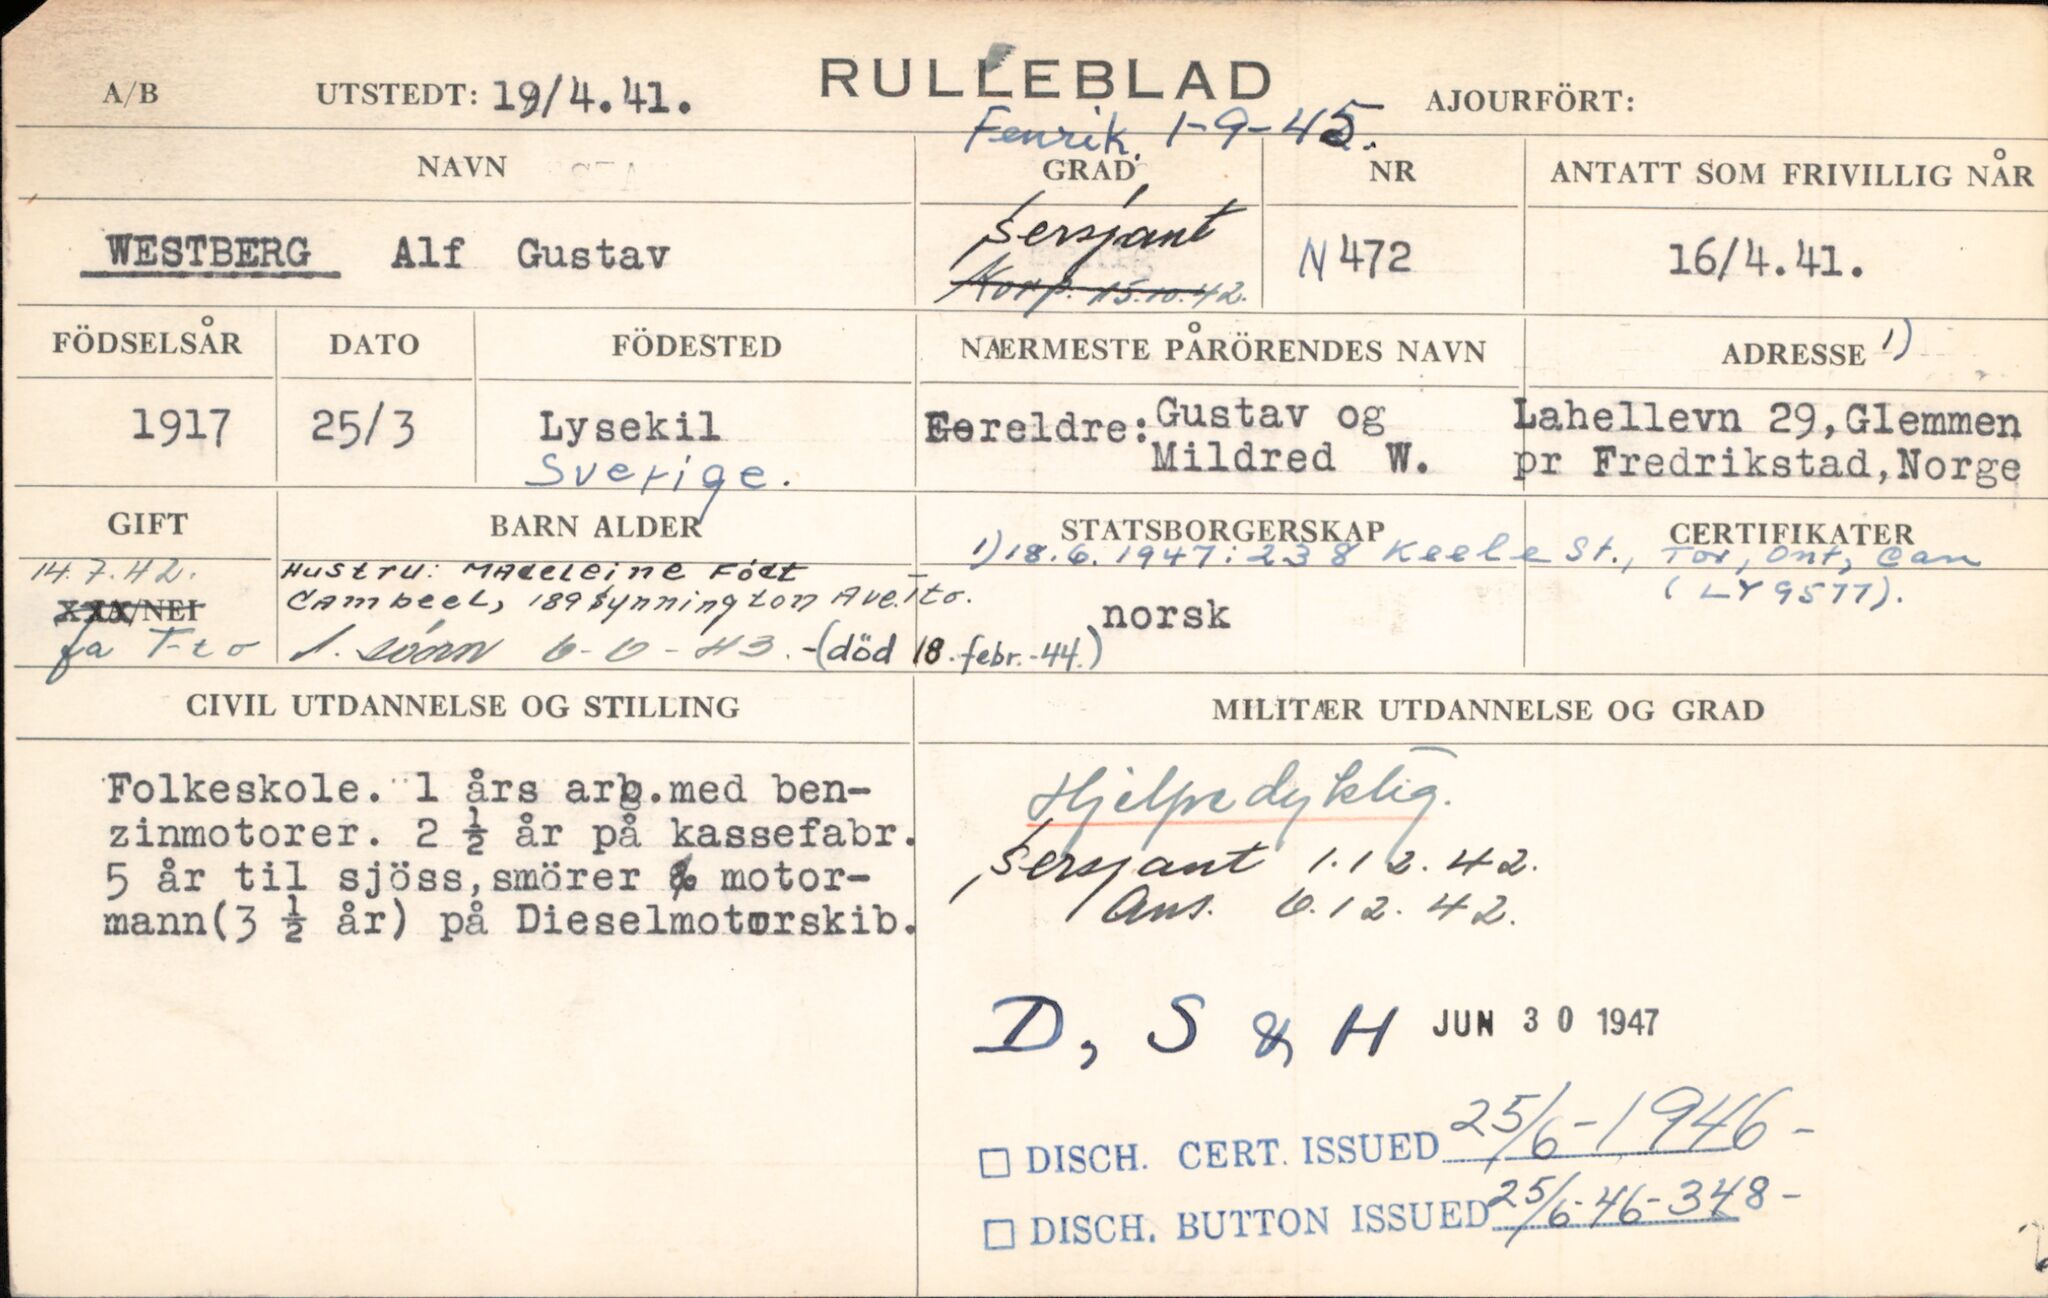 RULLEBLAD
A/B UTSTEDT: 19/4.41. AJOURFÖRT:
Fenrik. 1-9-45.
NAVN GRAD NR ANTATT SOM FRIVILLIG NÅR
WESTBERG Alf Gustav Sersjant N 472 16/4.41.
Korp. 15.10.42.
FÖDSELSÅR DATO FÖDESTED NÆRMESTE PÅRÖRENDES NAVN ADRESSE 1)
1917 25/3 Lysekil Foreldre: Gustav og Lahellevn 29,Glemmen
Sverige. Mildred W. pr Fredrikstad,Norge
GIFT BARN ALDER STATSBORGERSKAP CERTIFIKATER
1) 18.6.1947: 238 Keele St., Tor, Ont, Can
(LY 9577).
14.7.42. Hustru: Madeleine Födt
XXX/NEI Cambeel, 189 Synnington Ave. Tto. norsk
fra T-to 1. 6-6-43. -(död 18. febr. -44.)
CIVIL UTDANNELSE OG STILLING MILITÆR UTDANNELSE OG GRAD
Folkeskole. 1 års arb.med ben-
zinmotorer. 2 ½ år på kassefabr.
5 år til sjöss,smörer & motor-
mann(3 ½ år) på Dieselmotorskib.
Hjelpedyktig.
Sersjant 1.12.42.
Ans. 6.12.42.
D, S & H JUN 30 1947
DISCH. CERT. ISSUED 25/6-1946-
DISCH. BUTTON ISSUED 25/6-46-348-